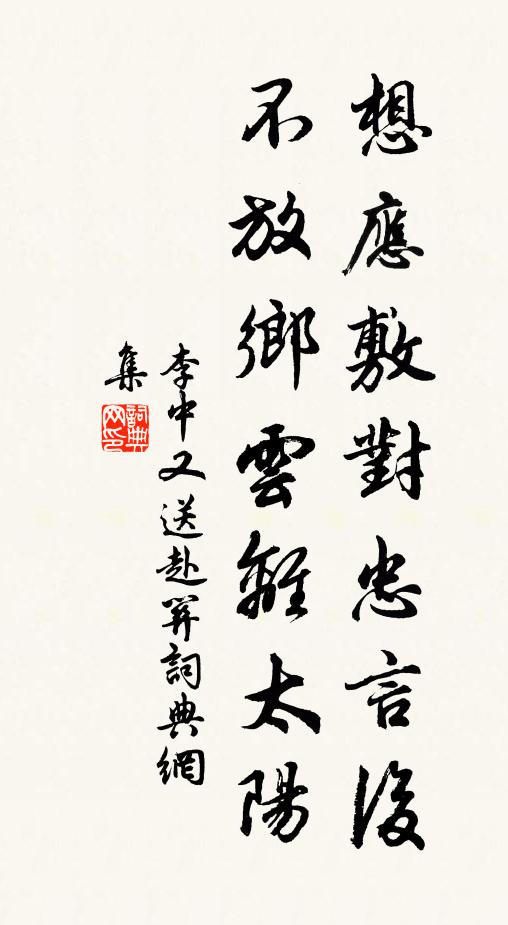 想應敷對忠言後
不放鄉雲離太陽
李中又送赴笄詞典網
集
詞典網印